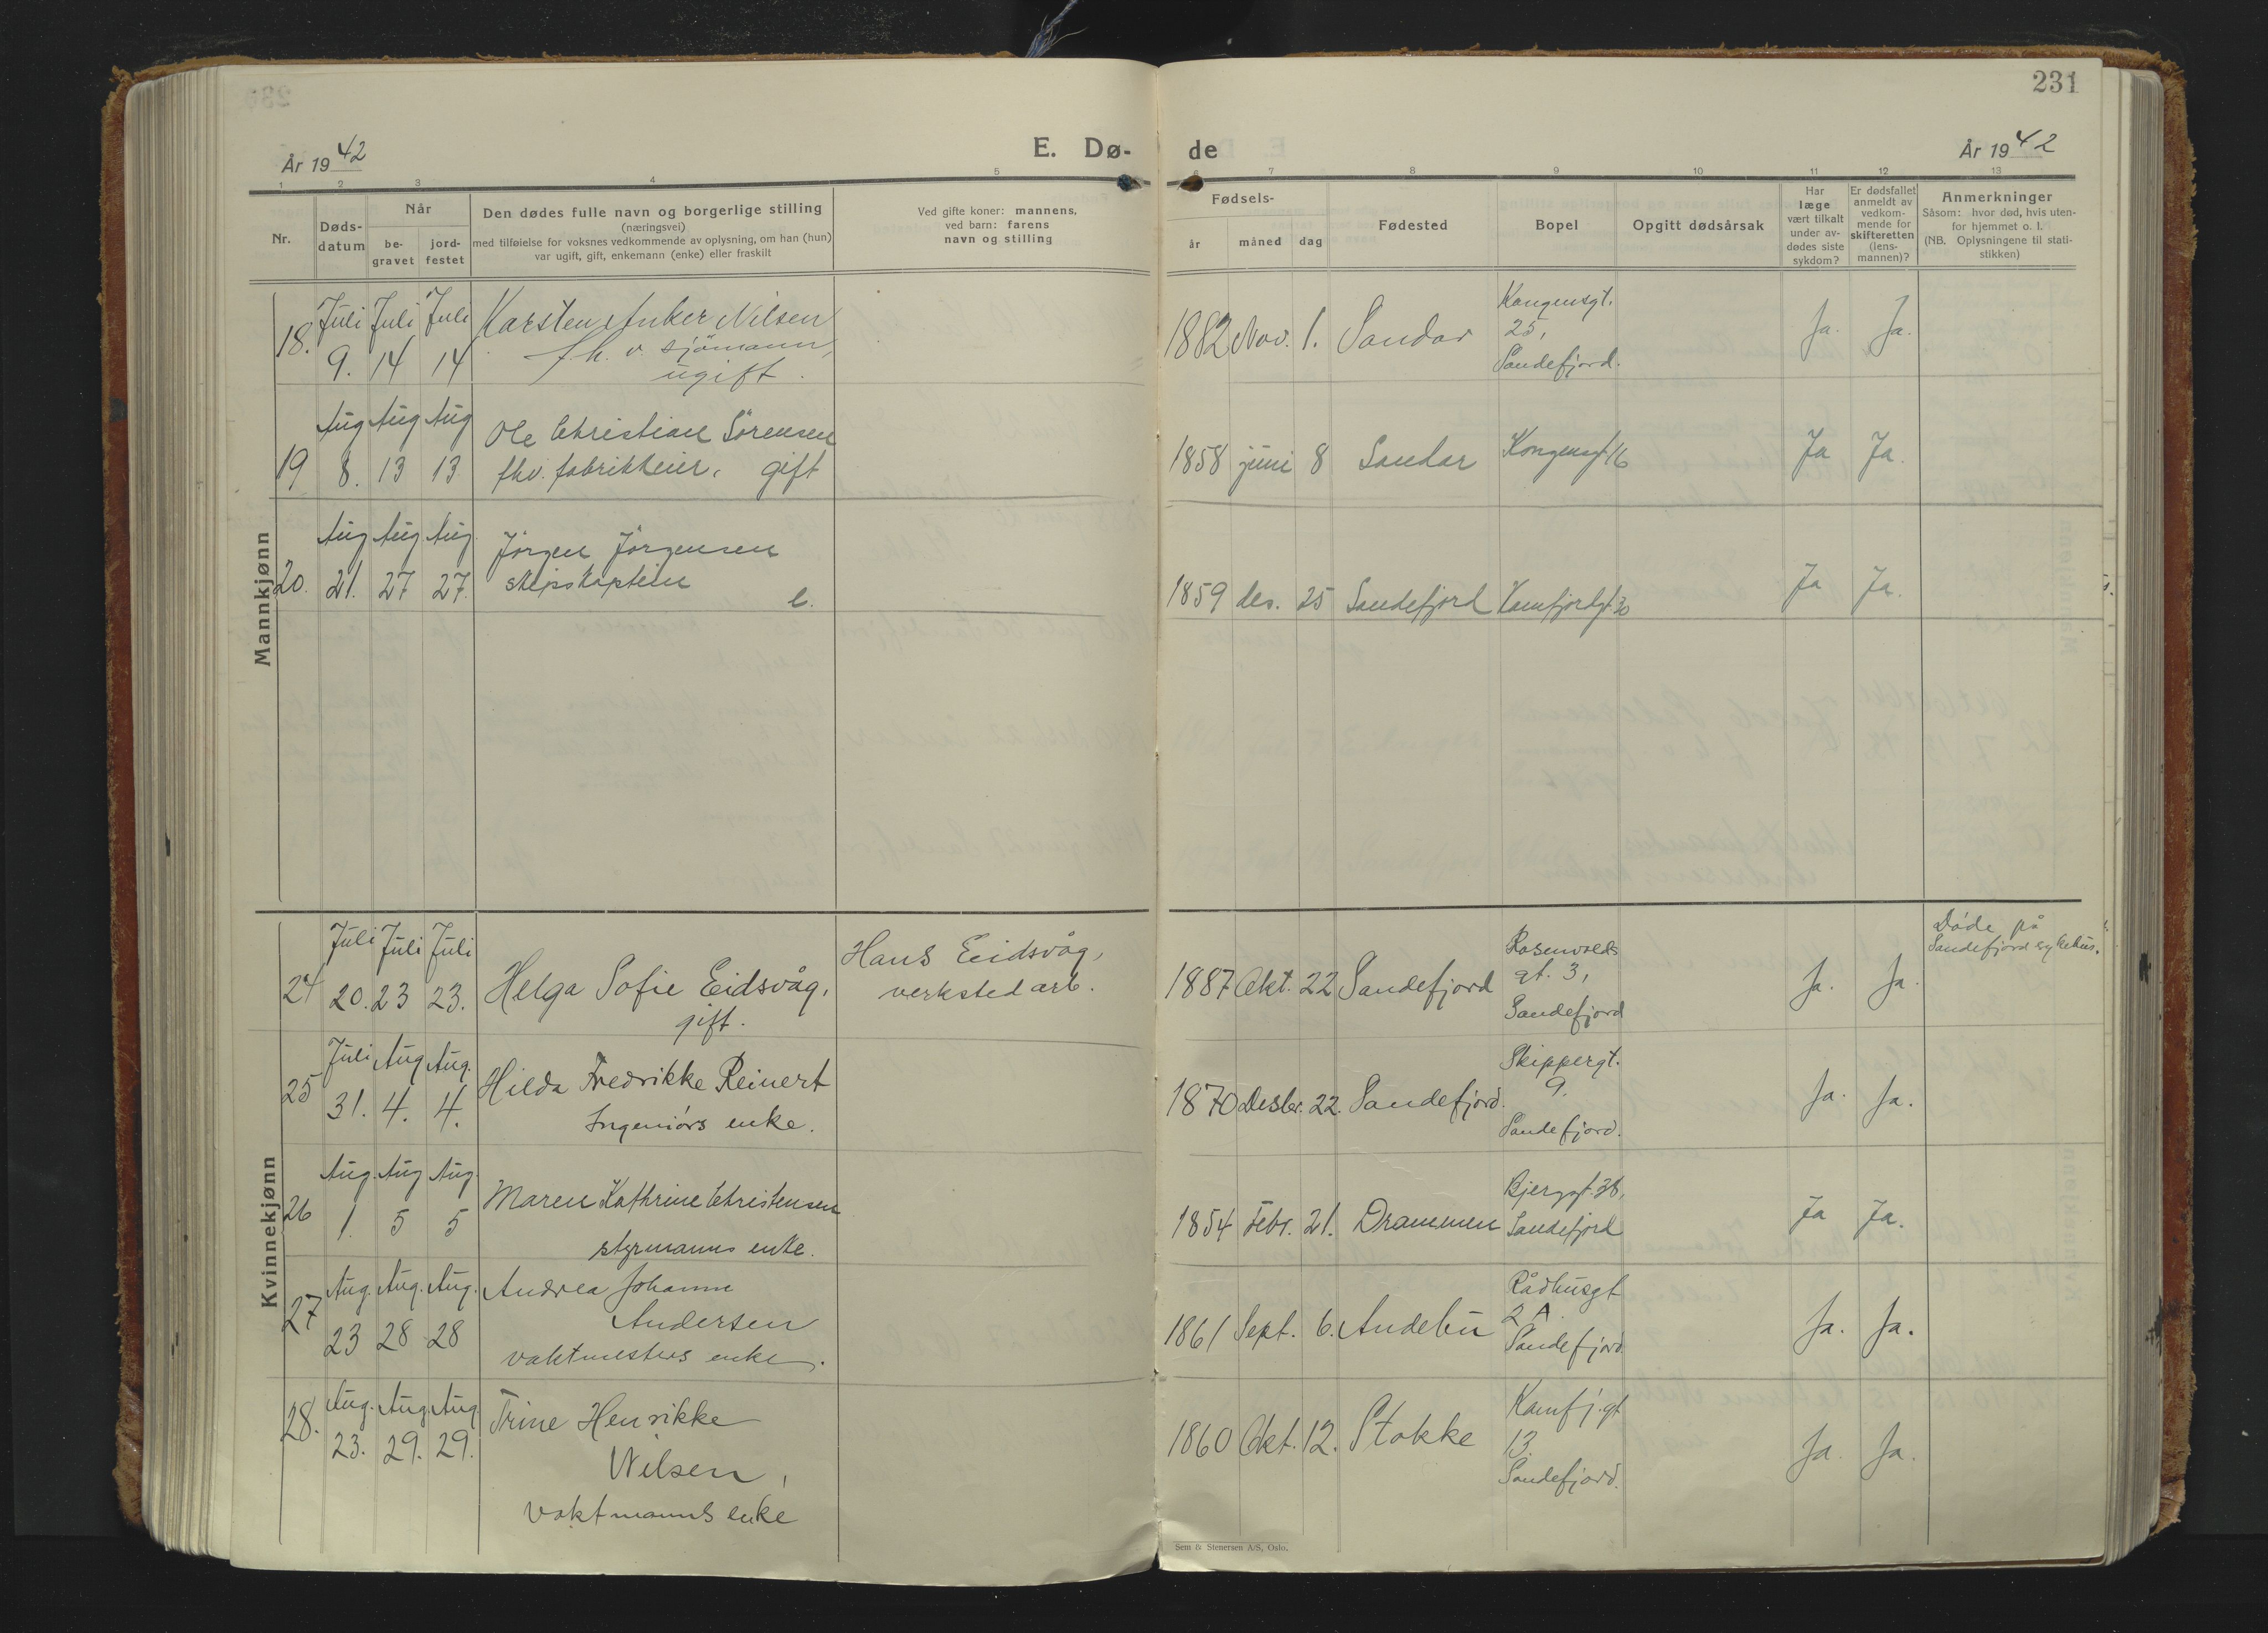 231
År 1942
E. Dø-
de
År 1942
1 2 3 4 5
6 7 8 9 10 11 12 13
Nr.
Døds-
datum
Når
be-
gravet
jord-
festet
Den dødes fulle navn og borgerlige stilling
(næringsvei)
med tilføielse for voksnes vedkommende av oplysning, om han (hun)
var ugift, gift, enkemann (enke) eller fraskilt
Ved gifte koner: mannens,
ved barn: farens
navn og stilling
Fødsels-
år
måned
dag
Fødested
Bopel
Opgitt dødsårsak
Har
læge
vært tilkalt
under av-
dødes siste
sykdom?
Er dødsfallet
anmeldt av
vedkom-
mende for
skifteretten
(lens-
mannen)?
Anmerkninger
Såsom: hvor død, hvis uten-
for hjemmet o. l.
(NB. Oplysningene til stati-
stikken)
Mannkjønn
18. Juli 9. Juli 14 Juli 14
Karsten Anker Nilsen
f. h. v. sjömann,
ugift.
1882 Nov. 1. Sandar
Kongensgt.
25,
Sandefjord.
Ja. Ja.
19 Aug 8. Aug 13 Aug 13
Ole Christian Sörensen
fhv. fabrikkeier, gift
1858 juni 8 Sandar Kongensgt 16 Ja Ja.
20. Aug 21. Aug 27 Aug. 27.
Jörgen Jörgensen
skipskaptein
e.
1859 des. 25 Sandefjord Kamfjordgt. 30 Ja Ja.
Kvinnekjønn
24 Juli 20. Juli 23 Juli 23.
Helga Sofie Eidsvåg,
gift.
Hans Eidsvåg,
verksted arb.
1887 Okt. 22 Sandefjord
Rosenvolds
gt. 3,
Sandefjord
Ja. Ja.
Døde på
Sandefjord sykehus.
25 Juli 31. Aug 4. Aug. 4.
Hilda Fredrikke Reinert
Ingeniørs enke.
1870 Desbr. 22. Sandefjord.
Skippergt.
9.
Sandefjord.
Ja. Ja.
26 Aug. 1. Aug 5 Aug. 5
Maren Kathrine Christensen
styrmanns enke.
1854 Febr. 21. Drammen
Bjerggt. 38,
Sandefjord
Ja Ja.
27 Aug. 23 Aug. 28 Aug. 28
Andrea Johanne
Andersen
vaktmesters enke.
1861 Sept. 6. Andebu
Rådhusgt
2 A.
Sandefjord
Ja. Ja.
28. Aug. 23. Aug. 29. Aug. 29.
Trine Henrikke
Nilsen,
Vaktmanns enke
1860 Okt. 12. Stokke
Kamfj. gt
13.
Sandefjord.
Ja. Ja.
Sem & Stenersen A/S, Oslo.